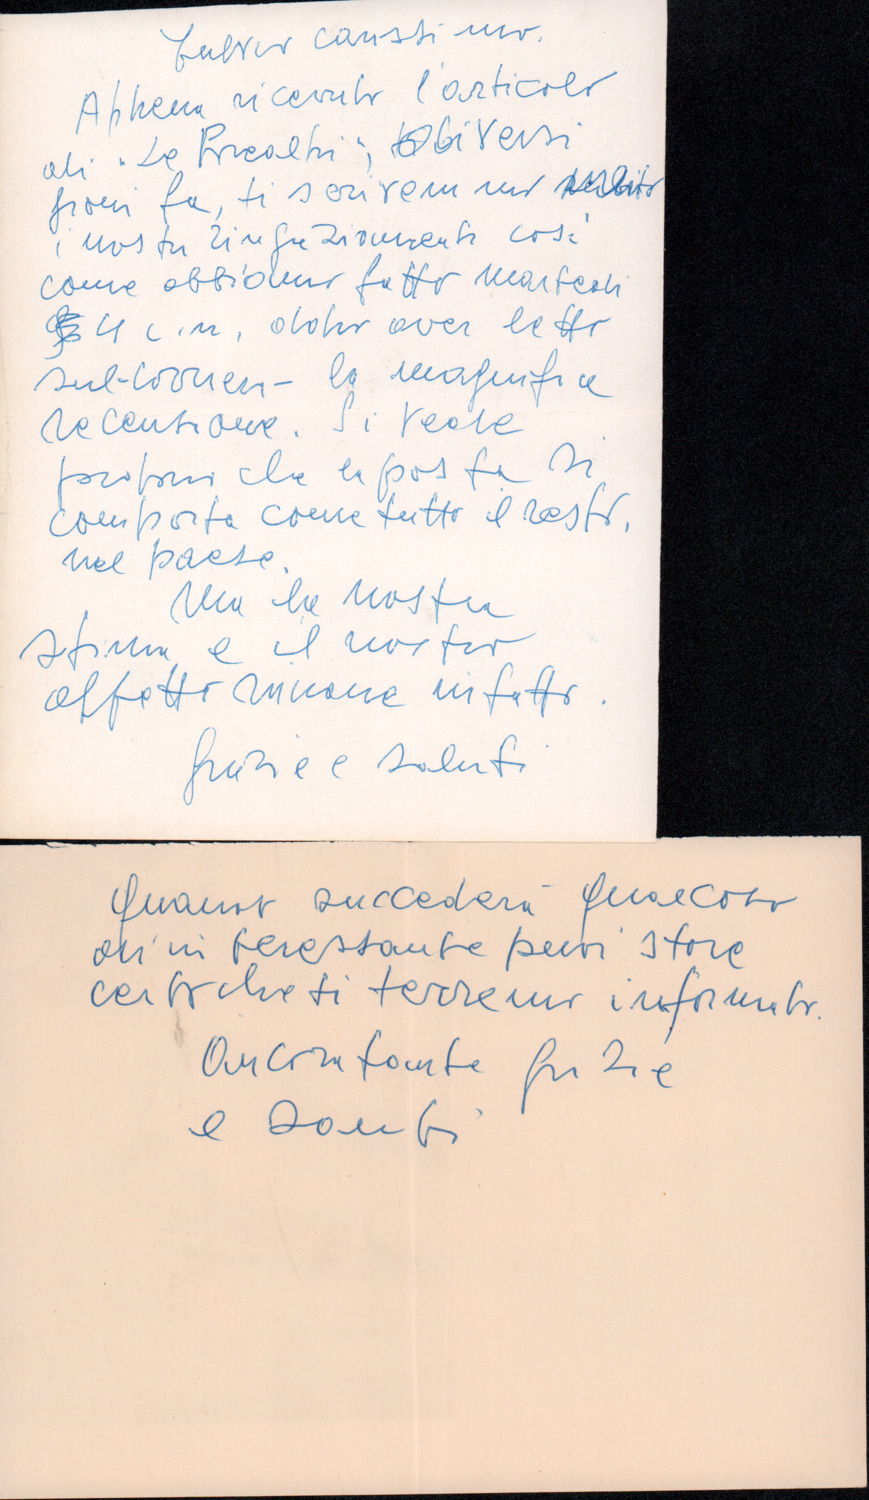 Fulvio carissimo.
Appena ricevuto l'articolo
di "Le Arcealtri", diversi
giorni fa, ti scrivemmo subito
i nostri ringraziamenti così
come abbiamo fatto martedì
4 c.m, dopo aver letto
sul-Corriere- la magnifica
recensione. Si vede
proprio che la posta si
comporta come tutto il resto,
nel paese.
Ma la nostra
stima e il nostro
affetto rimane intatto.
Grazie e saluti
Quando succederà qualcosa
di interessante puoi stare
certo che ti terremo informato.
Ancora tante grazie
e saluti